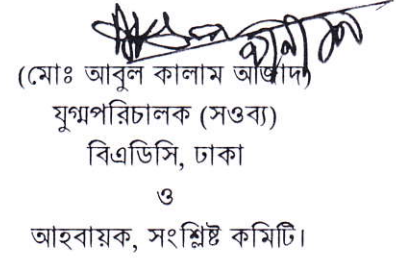 (মোঃ আবুল কালাম আজাদ)
যুগ্মপরিচালক (সওব্য)
বিএডিসি, ঢাকা
ও
আহবায়ক, সংশ্লিষ্ট কমিটি।